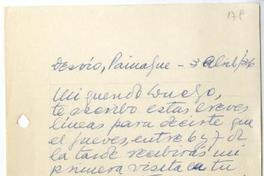 178
Desvío, Paimague - 3 Abril/86
Mi querido Lucho,
te escribo estas breves
líneas para decirte que
el jueves, entre 6 y 7 de
la tarde recibirás mi
primera visita en tu